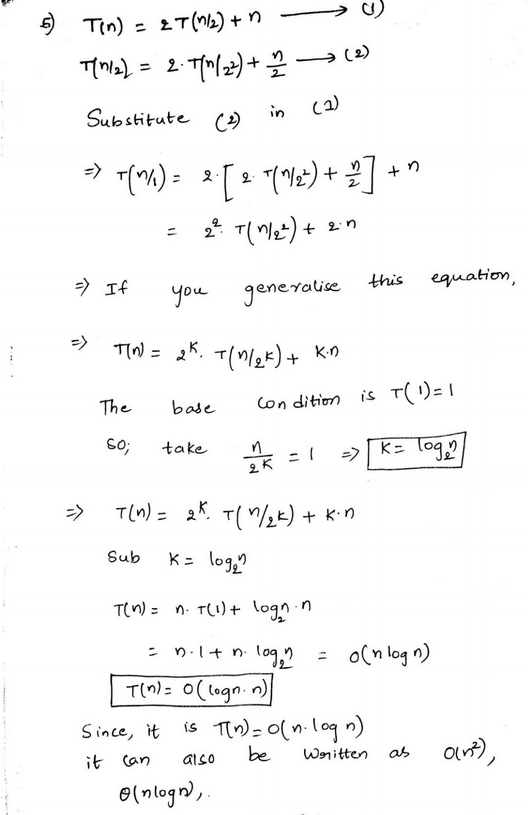 5) T(n) = 2T(n/2) + n ⟶ (1)
T(n/2) = 2·T(n/2²) + n/2 ⟶ (2)
Substitute (2) in (1)
⇒ T(n/1) = 2·[2·T(n/2²) + n/2] + n
= 2²·T(n/2²) + 2·n
⇒ If you generalise this equation,
⇒ T(n) = 2ᴷ·T(n/2ᴷ) + K·n
The base condition is T(1)=1
So; take n/2ᴷ = 1 ⇒ K = log₂n
⇒ T(n) = 2ᴷ·T(n/2ᴷ) + K·n
Sub K = log₂n
T(n) = n·T(1) + log₂n·n
= n·1 + n·log₂n = O(n log n)
T(n) = O(logn·n)
Since, it is T(n) = O(n·log n)
it can also be written as O(n²),
θ(nlogn),.